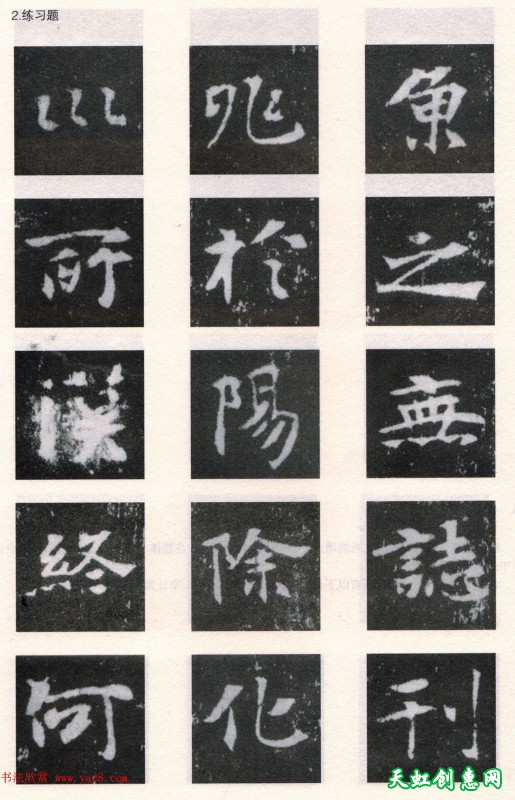 2.练习题
魚之無誌刊
兆於陽除化
巛所漢終何
书法欣赏 www.yac8.com
天虹创惠网